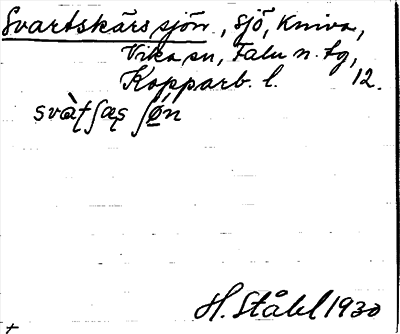 Svartskärssjön, sjö, Kniva,
Vika sn, Falu n. tg,
Kopparb. l. 12.
svàʈʃæʂ ʃøn
H. Ståhl 1930